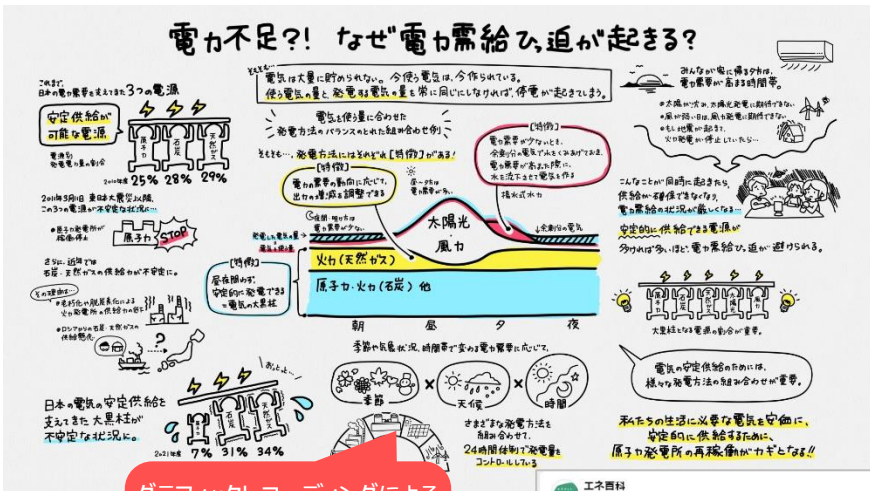 電力不足?! なぜ電力需給ひっ迫が起きる?
これまで、
日本の電力需要を支えてきた3つの電源
安定供給が
可能な電源
原子力
石炭
天然ガス
電源別
発電電力量の割合
2010年度 25% 28% 29%
2011年3月11日 東日本大震災以降、
この3つの電源が不安定な状況に…
原子力発電所が
稼働停止
原子力
STOP
さらに、近年では
石炭・天然ガスの供給力が不安定に。
その理由は…
老朽化や脱炭素化による
火力発電所の供給力の低下
ロシアからの石炭・天然ガスの
供給懸念
?
日本の電気の安定供給を
支えてきた大黒柱が
不安定な状況に。
おっとっと…
原子力
石炭
天然ガス
2021年度 7% 31% 34%
そもそも…
電気は大量に貯められない。今使う電気は、今作られている。
使う電気の量と、発電する電気の量を常に同じにしなければ、停電が起きてしまう。
電気を使う量に合わせた
発電方法のバランスのとれた組み合わせ例
そもそも…、発電方法にはそれぞれ[特徴]がある!
[特徴]
電力の需要の動向に応じて、
出力の増減を調整できる
昼〜夕方は
電力需要が多い
[特徴]
電力需要が少ないとき、
余剰分の電気で水をくみあげておき、
電力需要が高まった際に、
水を流下させて電気を作る
揚水式水力
夜間・明け方は
電力需要が少ない
発電した電気の量
電気の使用量
余剰分の電気
太陽光
風力
火力(天然ガス)
原子力・火力(石炭)他
[特徴]
昼夜問わず、
安定的に発電できる
=電気の大黒柱
朝 昼 夕 夜
季節や気象状況、時間帯で変わる電力需要に応じて、
季節 × 天候 × 時間
さまざまな発電方法を
組み合わせて、
24時間体制で発電量を
コントロールしている
グラフィックレコーディングによる
みんなが家に帰る夕方は、
電力需要が高まる時間帯。
太陽が沈み、太陽光発電に期待できない
風が弱い日は、風力発電に期待できない
もし地震が起きて、
火力発電が停止していたら…
こんなことが同時に起きたら、
供給が確保できなくなり、
電力需給の状況が厳しくなる…
安定的に供給できる電源が
多ければ多いほど電力需給ひっ迫が避けられる。
原子力
石炭
天然ガス
太陽光
風力
大黒柱となる電源の割合が重要。
電気の安定供給のためには、
様々な発電方法の組み合わせが重要。
私たちの生活に必要な電気を安価に、
安定的に供給するために、
原子力発電所の再稼働がカギとなる!!
エネ百科